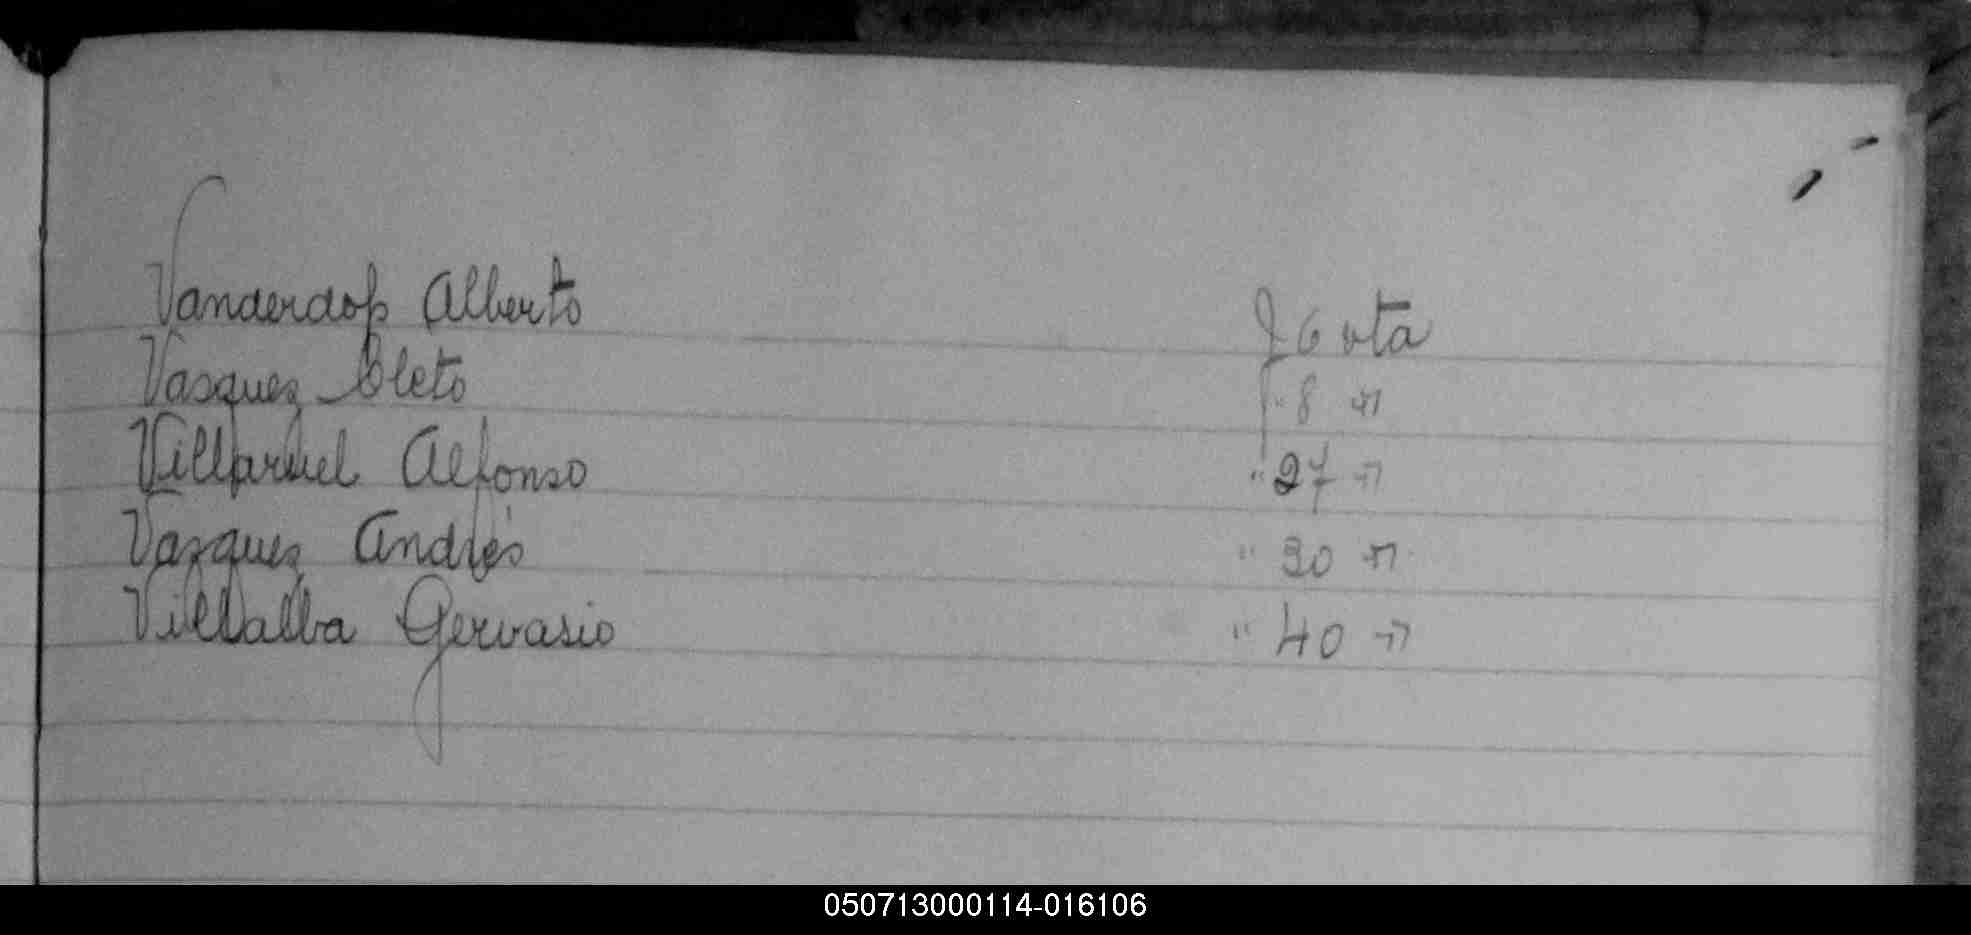 Vanderdos Alberto f 6 vta
Vasquez Cleto " 8 "
Villaruel Alfonso " 27 "
Vazquez Andrés " 30 "
Villalba Gervasio " 40 "
050713000114-016106